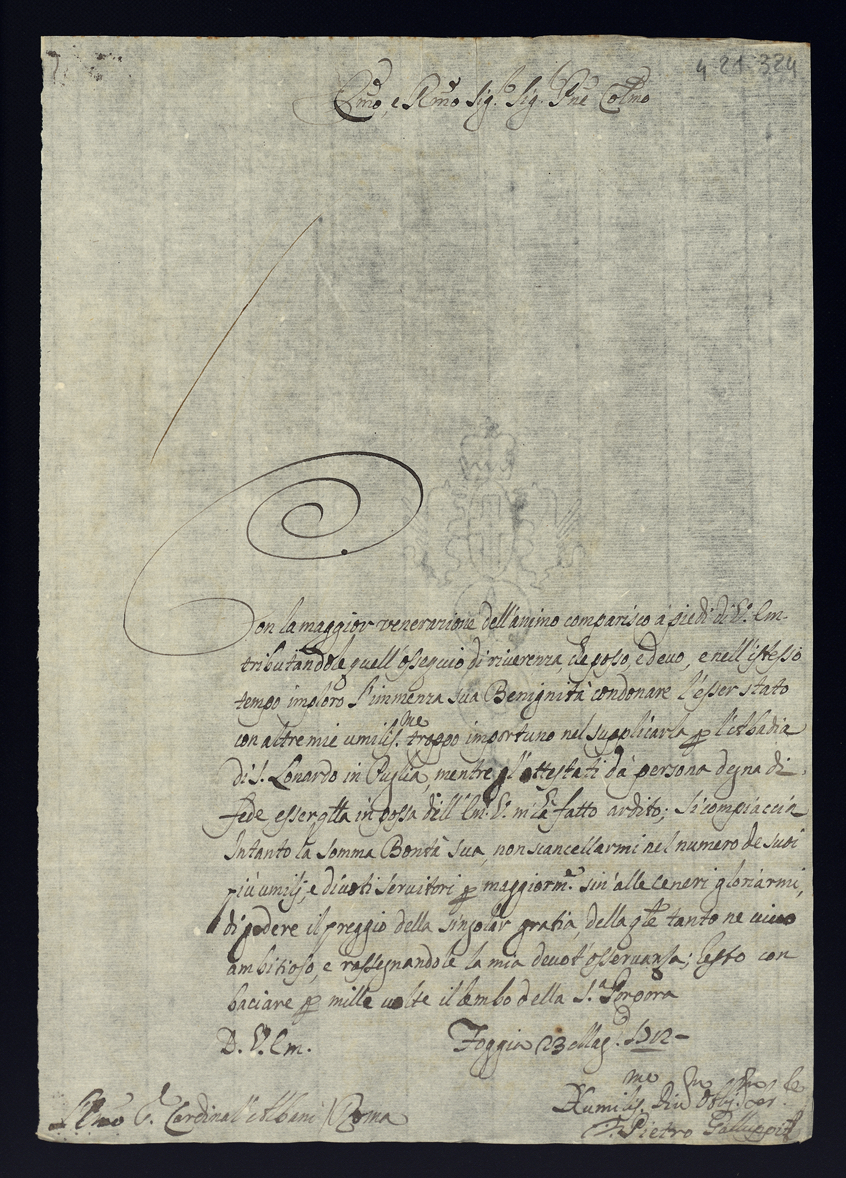 4 21 324
Em̃o, e Rm̃o Sig.r Sig. Pñe Colmo
Con la maggior venerazione dell'animo comparisco a piedi di V. Em.
tributandole quell'ossequio di riverenza, che poso, e devo, e nell'istesso
tempo imploro l'immenza sua Benignità condonare l'esser stato
con altre mie umilis.me troppo importuno nel supplicarla p l'Abadia
di S. Lonardo in Puglia, mentre gl'attestati da persona degna di
fede, esser qlla in possa dell'Em. V. mi à fatto ardito; si compiaccia
intanto la somma Bontà sua, non scancellarmi nel numero de suoi
più umili, e divoti servitori p maggiorm.e sin'alle ceneri gloriarmi,
di godere il preggio della singolar gratia, della qle tanto ne vivo
ambitioso, e rassegnandole la mia devot'osservansa; resto con
baciare p mille volte il lembo della S.a Porpora
D. V. Em. Foggia 23 Mag. 1712
Humilis.mo Div. Obl. Ser.
Em̃o S. Cardinal'Albani / Roma F. Pietro Galluppi